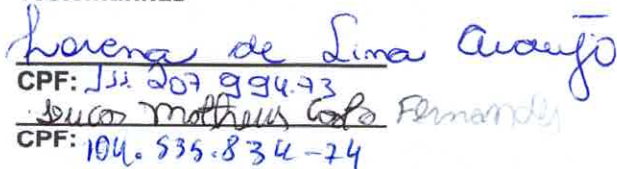 Lorena de Lima Araujo
CPF: 111 207 994.73
Lucas Matheus Costa Fernandes
CPF: 104.535.834-74